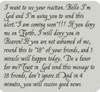 I want to see your reaction. Hello I'm
God and I'm asking you to send this
alert "I am coming soon"!!! If you deny
me on Earth, I will deny you in
Heaven! If you are not ashamed of me,
resend this to "18" of your friends, and 1
miracle will happen today. "Do a favor
for me? Trust in God send this message to
18 friends, don't ignore it. God in 4
minutes, you will receive good news